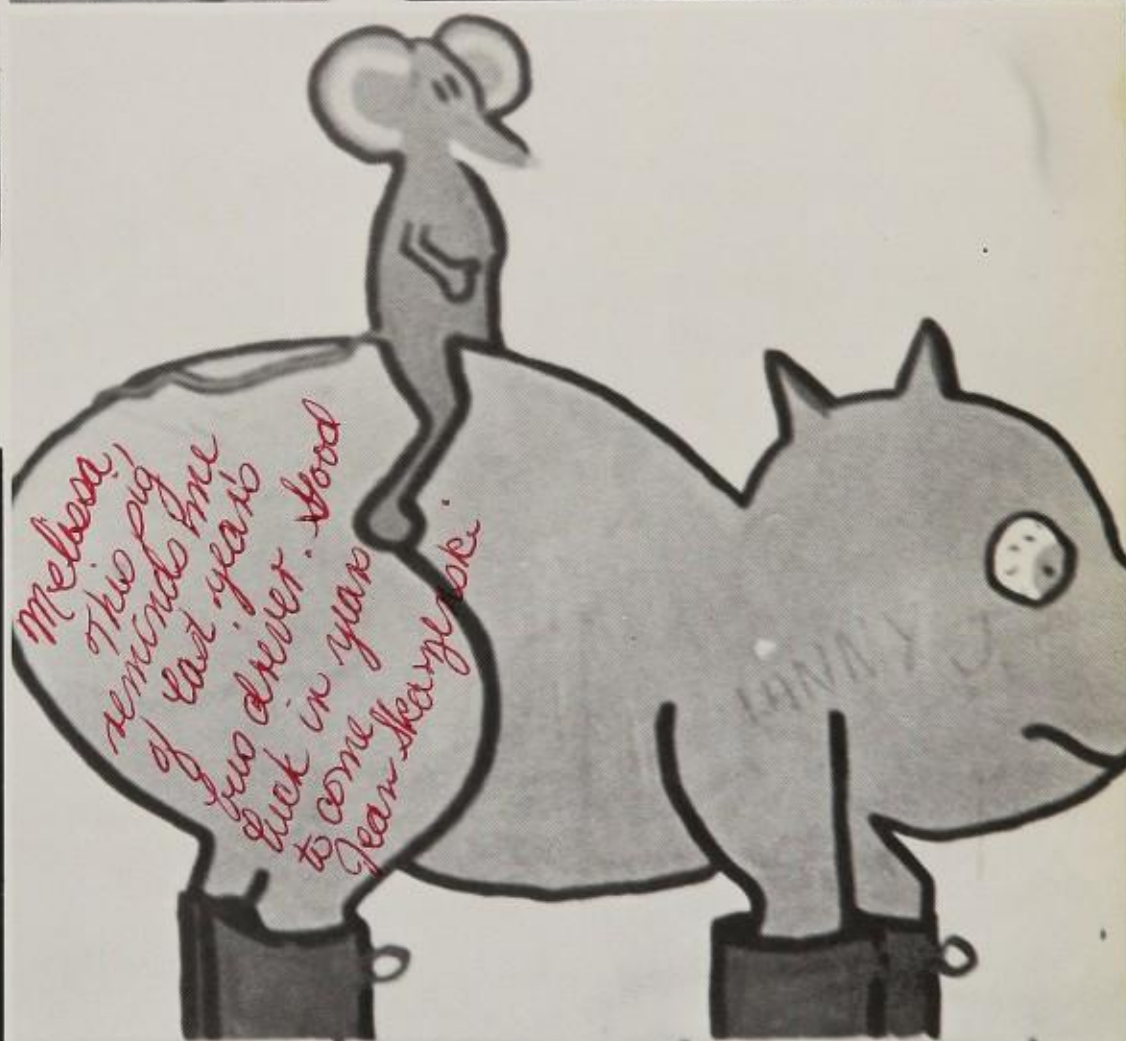 Melissa,
This pig
reminds me
of last year's
bus driver. Good
luck in years
to come
Jean Skarzenski
LANNY J.